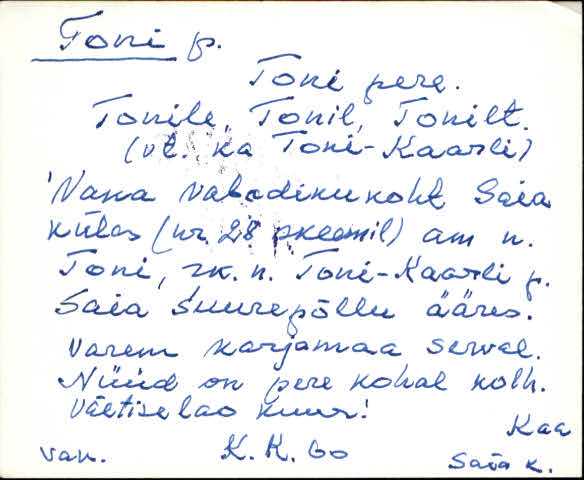 Toni p.
Toni pere.
Tonile, Tonil, Tonilt.
(vt. ka Toni-Kaarli)
Vana vabadikukoht Saia
külas (nr. 28 pkeemil) am n.
Toni, rk. n. Toni-Kaarli p.
Saia Suurepõllu ääres.
Varem karjamaa serval.
Nüüd on pere kohal kolh.
väetiselao kuur!
Kaa
van. K. K. 60 Saia k.